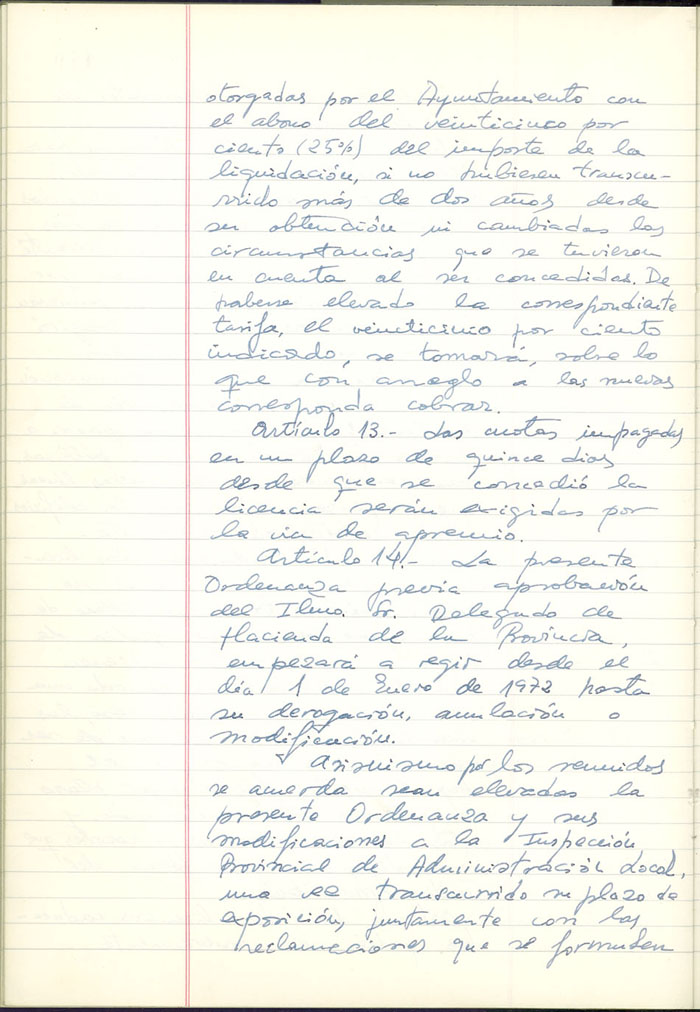 otorgadas por el Ayuntamiento con
el abono del veinticinco por
ciento (25%) del importe de la
liquidación, si no hubiesen transcu-
rrido más de dos años desde
su obtención ni cambiadas las
circunstancias que se tuvieron
en cuenta al ser concedidas. De
haberse elevado la correspondiente
tarifa, el veinticinco por ciento
indicado, se tomará, sobre lo
que con arreglo a las nuevas
corresponda cobrar.
Artículo 13.- Las cuotas impagadas
en un plazo de quince días
desde que se concedió la
licencia serán exigidas por
la via de apremio.
Artículo 14.- La presente
Ordenanza previa aprobación
del Ilmo. Sr. Delegado de
Hacienda de la Provincia,
empezará a regir desde el
día 1 de Enero de 1972 hasta
su derogación, anulación o
modificación.
Asimismo por los reunidos
se acuerda sean elevadas la
presente Ordenanza y sus
modificaciones a la Inspección
Provincial de Administración Local,
una vez transcurrido su plazo de
exposición, juntamente con las
reclamaciones que se formulen